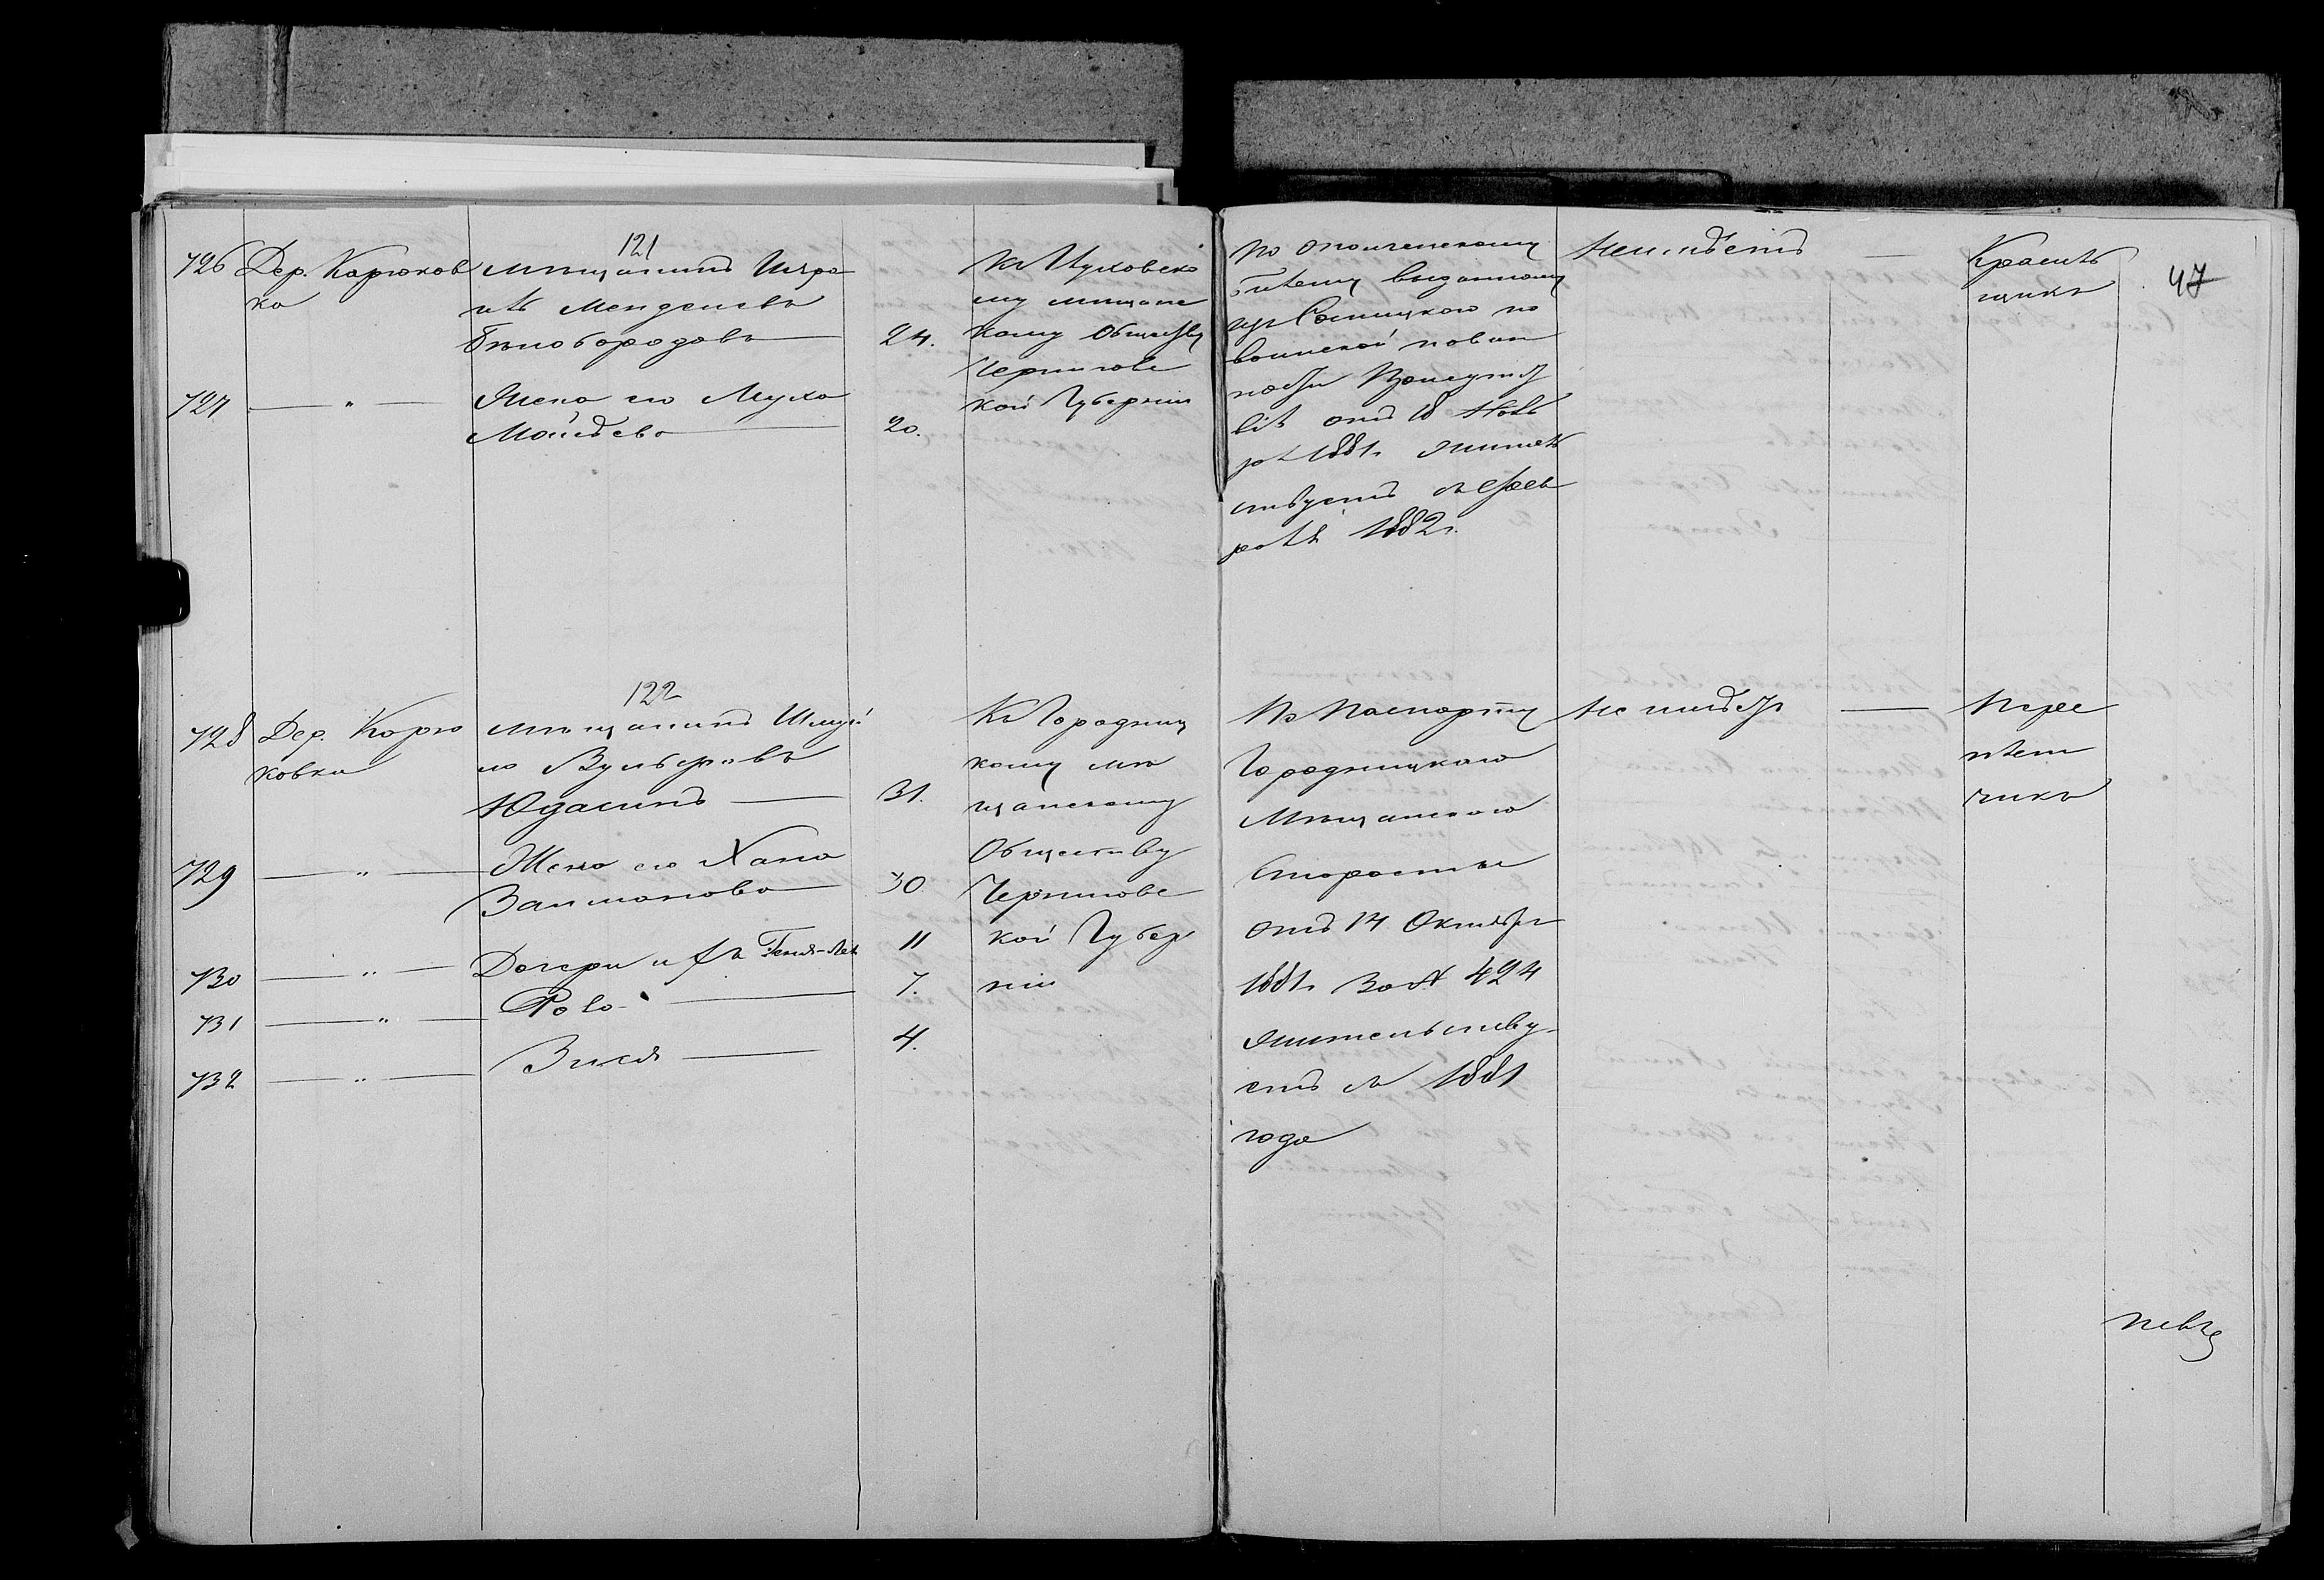 121
726 Дер. Карюков
ка
мещанинъ Изра
иль Менделевъ
Белобородовъ 24.
727 — " — Жена его Муха
Мовшева 20.
Къ Глуховско
му мещанс
кому Обществу
Чернигово
кой Губерніи
по ополченскому
билету выданному
изъ Сосницкого по
воинской повин
ности Присутст
вія отъ 18 Нояб
ря 1881г. жительс
ствуетъ съ Фев
раля 1882г.
Неимѣетъ —
Красиль
щикъ
47
122
728 Дер. Карю
ковка
мещанинъ Шмуй
ло Вульфовъ
Юдасинъ — 31.
729 — " — Жена его Хана
Залманова 30.
730 — " — Дочери ихъ Геня-Лея 11
731 — " — Рова — 7.
732 — " — Зися — 4.
Къ Городниц
кому мѣ
щанскому
Обществу
Черниговс
кой Губер
ніи
По Паспорту
Городницкаго
Мѣщанского
Старосты
отъ 14 Октября
1881г. за № 424
жительству-
етъ съ 1881
года
Не имѣетъ —
Пере
плет
чикъ